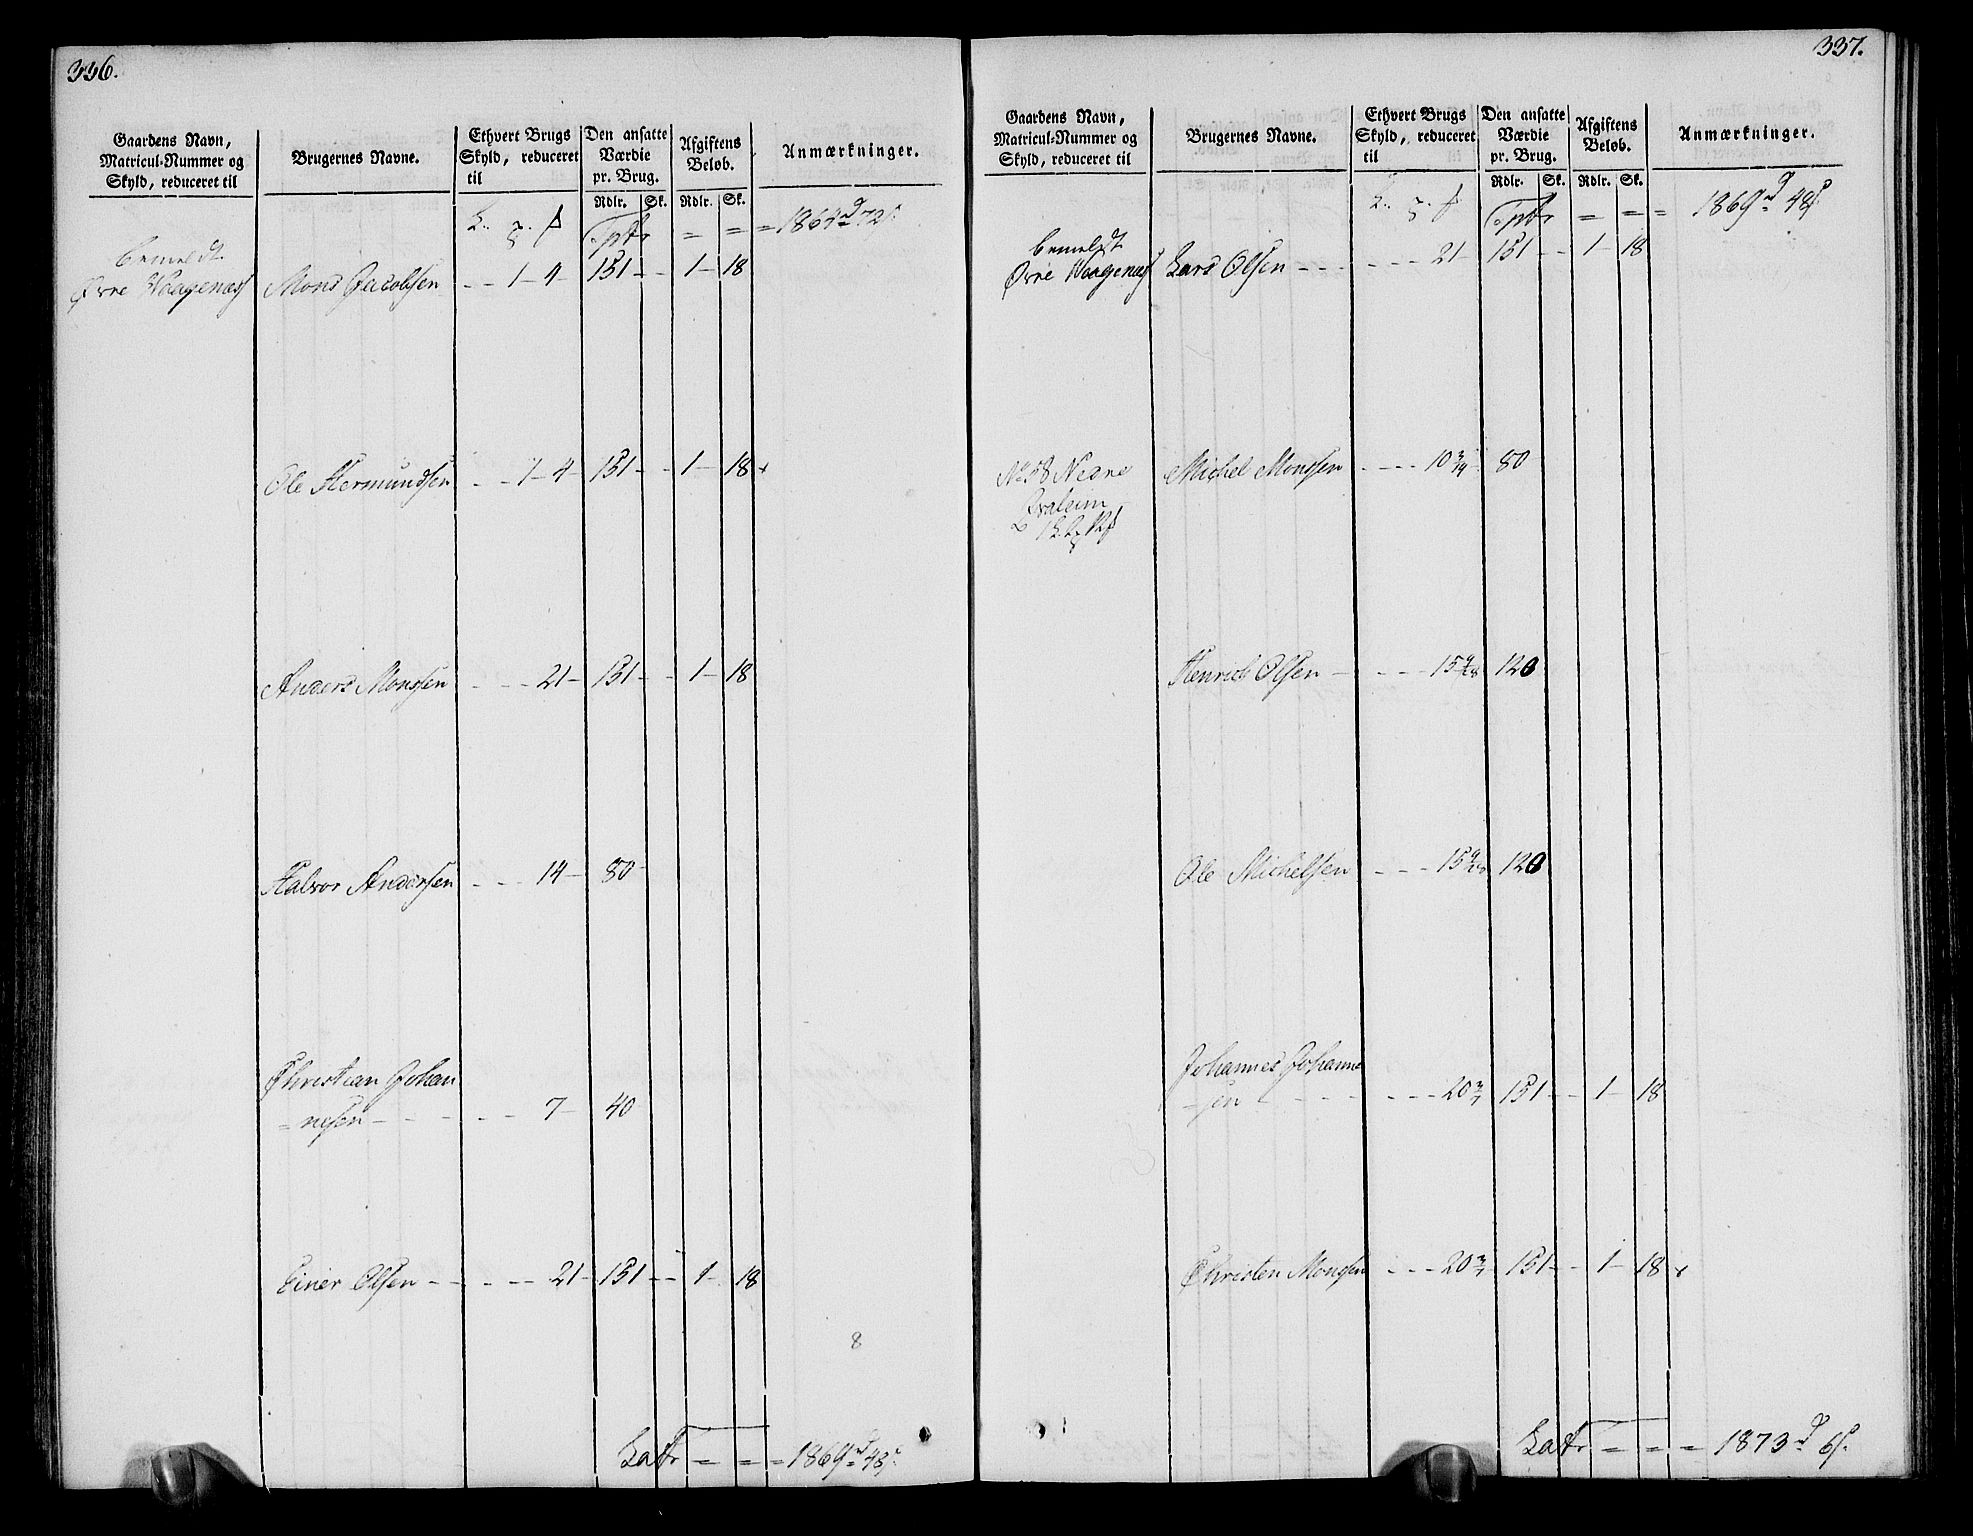 336.
Gaardens Navn, Matricul-Nummer og Skyld, reduceret til
Brugernes Navne.
Ethvert Brugs Skyld, reduceret til
Den ansatte Værdie pr. Brug.
Afgiftens Beløb.
Anmærkninger.
Rdlr. Sk. Rdlr. Sk.
Tptr = = = 1864 72
bemeldt
Øvre Waagenæs Mons Jacobsen - - 1 - 4 - 151 - - 1 - 18
Ole Hermundsen - - 1 - 4 - 151 - - 1 - 18
Anders Monssen - - - 21 - 151 - - 1 - 18
Halvor Andersen - - - 14 - 80 -
Christian Johan
= nesen - - - - - 7 - 40
Einer Olsen - - - - - 21 - 151 - - 1 - 18
8
Latr = = = 1869 48
337.
Gaardens Navn, Matricul-Nummer og Skyld, reduceret til
Brugernes Navne.
Ethvert Brugs Skyld, reduceret til
Den ansatte Værdie pr. Brug.
Afgiftens Beløb.
Anmærkninger.
Rdlr. Sk. Rdlr. Sk.
Tptr = = = 1869 48
bemeldt
Øvre Waagenæs Lars Olsen - - - - - - 21 - 151 - - 1 - 18
No 58 Nedre Michel Monssen - - - - 10 3/14 80
Henrich Olsen - - - - 15 9/28 120
Ole Michelsen - - - - 15 9/28 120
Johannes Johanne
- sen - - - - - 20 3/7 151 - - 1 - 18
Christen Monssen - - - 20 3/7 151 - - 1 - 18
Latr = = = 1873 6